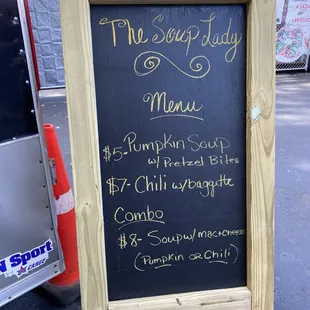 The Soup Lady
Menu
$5- Pumpkin Soup
w/ Pretzel Bites
$7- Chili w/baggette
Combo
$8- Soup w/mac+cheese
(Pumpkin or Chili)
n Sport
CARGO